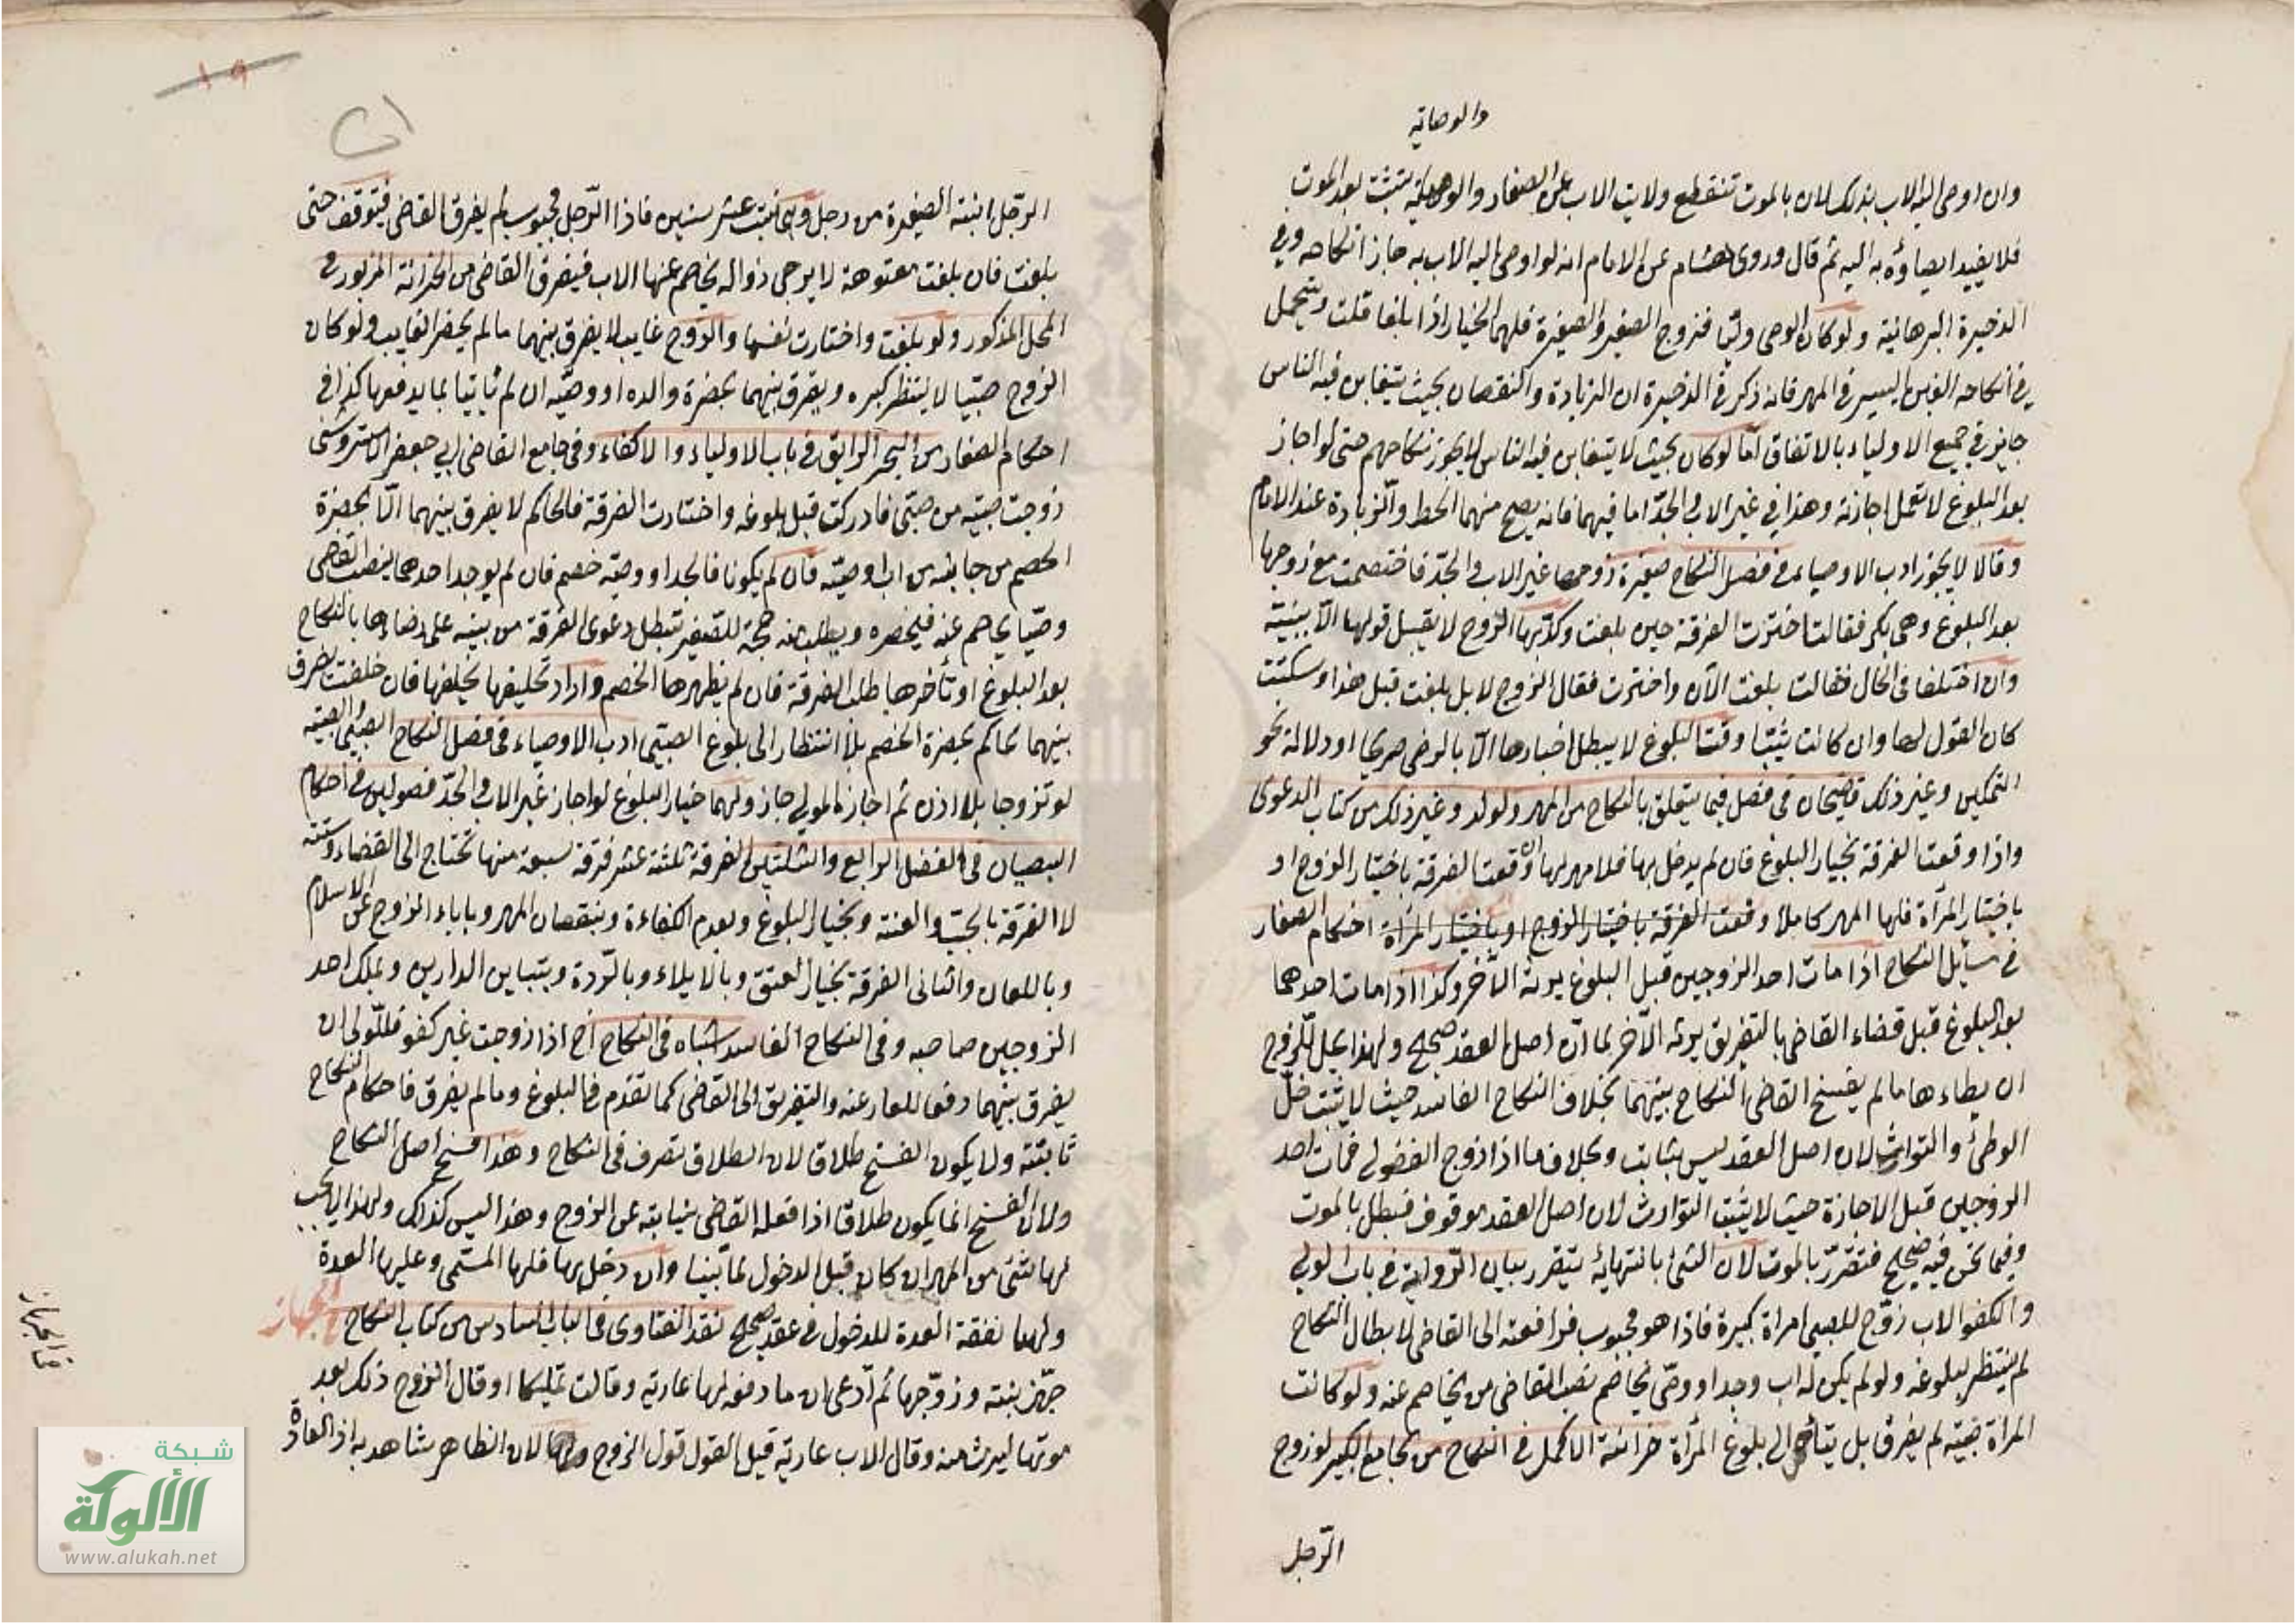 والوصاية
وان اوصى اليه الاب بذلك لان بالموت تنقطع ولايت الاب على الصغار والوصاية يثبت بعد الموت
فلا يفيد ايصاؤه به اليه ثم قال وروى هشام عن الامام انه لو اوصى اليه الاب به جاز انكاحه وفي
الذخيرة البرهانية ولو كان الوصى وليا فزوج الصغير والصغيرة فلهما الخيار اذا بلغا قلت ويتحمل
في انكاحه الغبن اليسير في المهر فانه ذكر في الذخيرة ان الزيادة والنقصان بحيث يتغابن فيه الناس
جايز في جميع الاولياء بالاتفاق اما لو كان بحيث لا يتغابن فيه الناس لا يجوز نكاحهم حتى لو اجاز
بعد البلوغ لا تعمل اجازته وهذا في غير الاب والجد اما فيهما فانه يصح منهما الحط والزيادة عند الامام
وقالا لا يجوز ادب الاوصياء في فصل النكاح صغيرة زوجها غير الاب والجد فاختصمت مع زوجها
بعد البلوغ وهى بكر فقالت اخترت الفرقة حين بلغت وكذبها الزوج لا يقبل قولها الا ببينة
وان اختلفا فى الحال فقالت بلغت الآن واخترت فقال الزوج لا بل بلغت قبل هذا وسكتت
كان القول لها وان كانت ثيبا وقت البلوغ لا يبطل خيارها الا بالرضى صريحا او دلالة نحو
التمكين وغير ذلك قاضيخان فى فصل فيما يتعلق بالنكاح من المهر والولد وغير ذلك من كتاب الدعوى
واذا وقعت الفرقة بخيار البلوغ فان لم يدخل بها فلا مهر لها وقعت الفرقة باختيار الزوج او
باختيار المرأة فلها المهر كاملا وقعت الفرقة باختيار الزوج او باختيار المرأة احكام الصغار
في مسائل النكاح اذا مات احد الزوجين قبل البلوغ يرثه الآخر وكذا اذا مات احدهما
بعد البلوغ قبل قضاء القاضى بالتفريق يرثه الآخر لما ان اصل العقد صحيح ولهذا يحل للزوج
ان يطاءها ما لم يفسخ القاضى النكاح بينهما بخلاف النكاح الفاسد حيث لا يثبت حل
الوطئ والتوارث لان اصل العقد ليس بثابت وبخلاف ما اذا زوج الفضولى فمات احد
الزوجين قبل الاجازة حيث لا يثبت التوارث لان اصل العقد موقوف فبطل بالموت
وفيما نحن فيه صحيح فتقرر بالموت لان الشئ بانتهائه يتقرر بيان الرواية في باب الولى
والكفو الاب زوج للصبى امراة كبيرة فاذا هو مجبوب فرافعته الى القاضى لابطال النكاح
لم ينتظر بلوغه ولو لم يكن له اب وجد او وصى يخاصم نصب القاضى من يخاصم عنه ولو كانت
المرأة صبية لم يفرق بل يتأخر الى بلوغ المرأة خزانة الاكمل في النكاح من جامع الكبير لو زوج
الرجل
الرجل ابنته الصغيرة من رجل وهى بنت عشر سنين فاذا الرجل مجبوب لم يفرق القاضى فيتوقف حتى
بلغت فان بلغت معتوهة لا يرجى زواله يخاصم عنها الاب فيفرق القاضى من الخزانة المزبور في
المحل المذكور ولو بلغت واختارت نفسها والزوج غايب لا يفرق بينهما ما لم يحضر الغايب ولو كان
الزوج صبيا لا ينتظر كبره ويفرق بينهما بحضرة والده او وصيه ان لم يأتيا بما يدفعها كذا في
احكام الصغار من البحر الرايق في باب الاولياء والاكفاء وفى جامع القاضى ابي جعفر الاستروسنى
زوجت صبية من صبى فادركت قبل بلوغه واختارت الفرقة فالحاكم لا يفرق بينهما الا بحضرة
الخصم من جانبه من اب او وصيه فان لم يكونا فالجد او وصيه خصم فان لم يوجد احدهما ينصب القاضى
وصيا يخاصم عنه فيحضره ويطلب منه حجة للصغير تبطل دعوى الفرقة من بينة على رضاءها بالنكاح
بعد البلوغ او تأخرها طلب الفرقة فان لم يظهرها الخصم واراد تحليفها يحلفها فان حلفت يفرق
بينهما الحاكم بحضرة الخصم بلا انتظار الى بلوغ الصبى ادب الاوصياء فى فصل النكاح الصبى والصبية
لو تزوجا بلا اذن ثم اجازه الولى جاز ولهما خيار البلوغ لو اجاز غير الاب والجد فصولين في احكام
الصبيان فى الفصل الرابع والثلثين الفرقة ثلثة عشر فرقة سبعة منها تحتاج الى القضاء وستة
لا الفرقة بالجب والعنة وبخيار البلوغ وبعدم الكفاءة وبنقصان المهر وباباء الزوج عن الاسلام
وباللعان والثانى الفرقة بخيار العتق وبالايلاء وبالردة وبتباين الدارين وبملك احد
الزوجين صاحبه وفى النكاح الفاسد اشباه فى النكاح اخ اذا زوجت غير كفو فللولى ان
يفرق بينهما دفعا للعار عنه والتفريق الى القاضى كما تقدم فى البلوغ وما لم يفرق فاحكام النكاح
ثابتة ولا يكون الفسخ طلاقا لان الطلاق تصرف فى النكاح وهذا فسخ اصل النكاح
ولان الفسخ انما يكون طلاقا اذا فعله القاضى نيابة عن الزوج وهذا ليس كذلك ولهذا لا يجب
لها شئ من المهر ان كان قبل الدخول لما بينا وان دخل بها فلها المسمى وعليها العدة
ولها نفقة العدة للدخول في عقد صحيح نقد الفتاوى فى الباب السادس من كتاب النكاح
جهز بنته وزوجها ثم ادعى ان ما دفعه لها عارية وقالت تمليكا او قال الزوج ذلك بعد
موتها ليرث منه وقال الاب عارية قيل القول قول الزوج ولها لان الظاهر شاهد به اذ العادة
شبكة
الألوكة
www.alukah.net